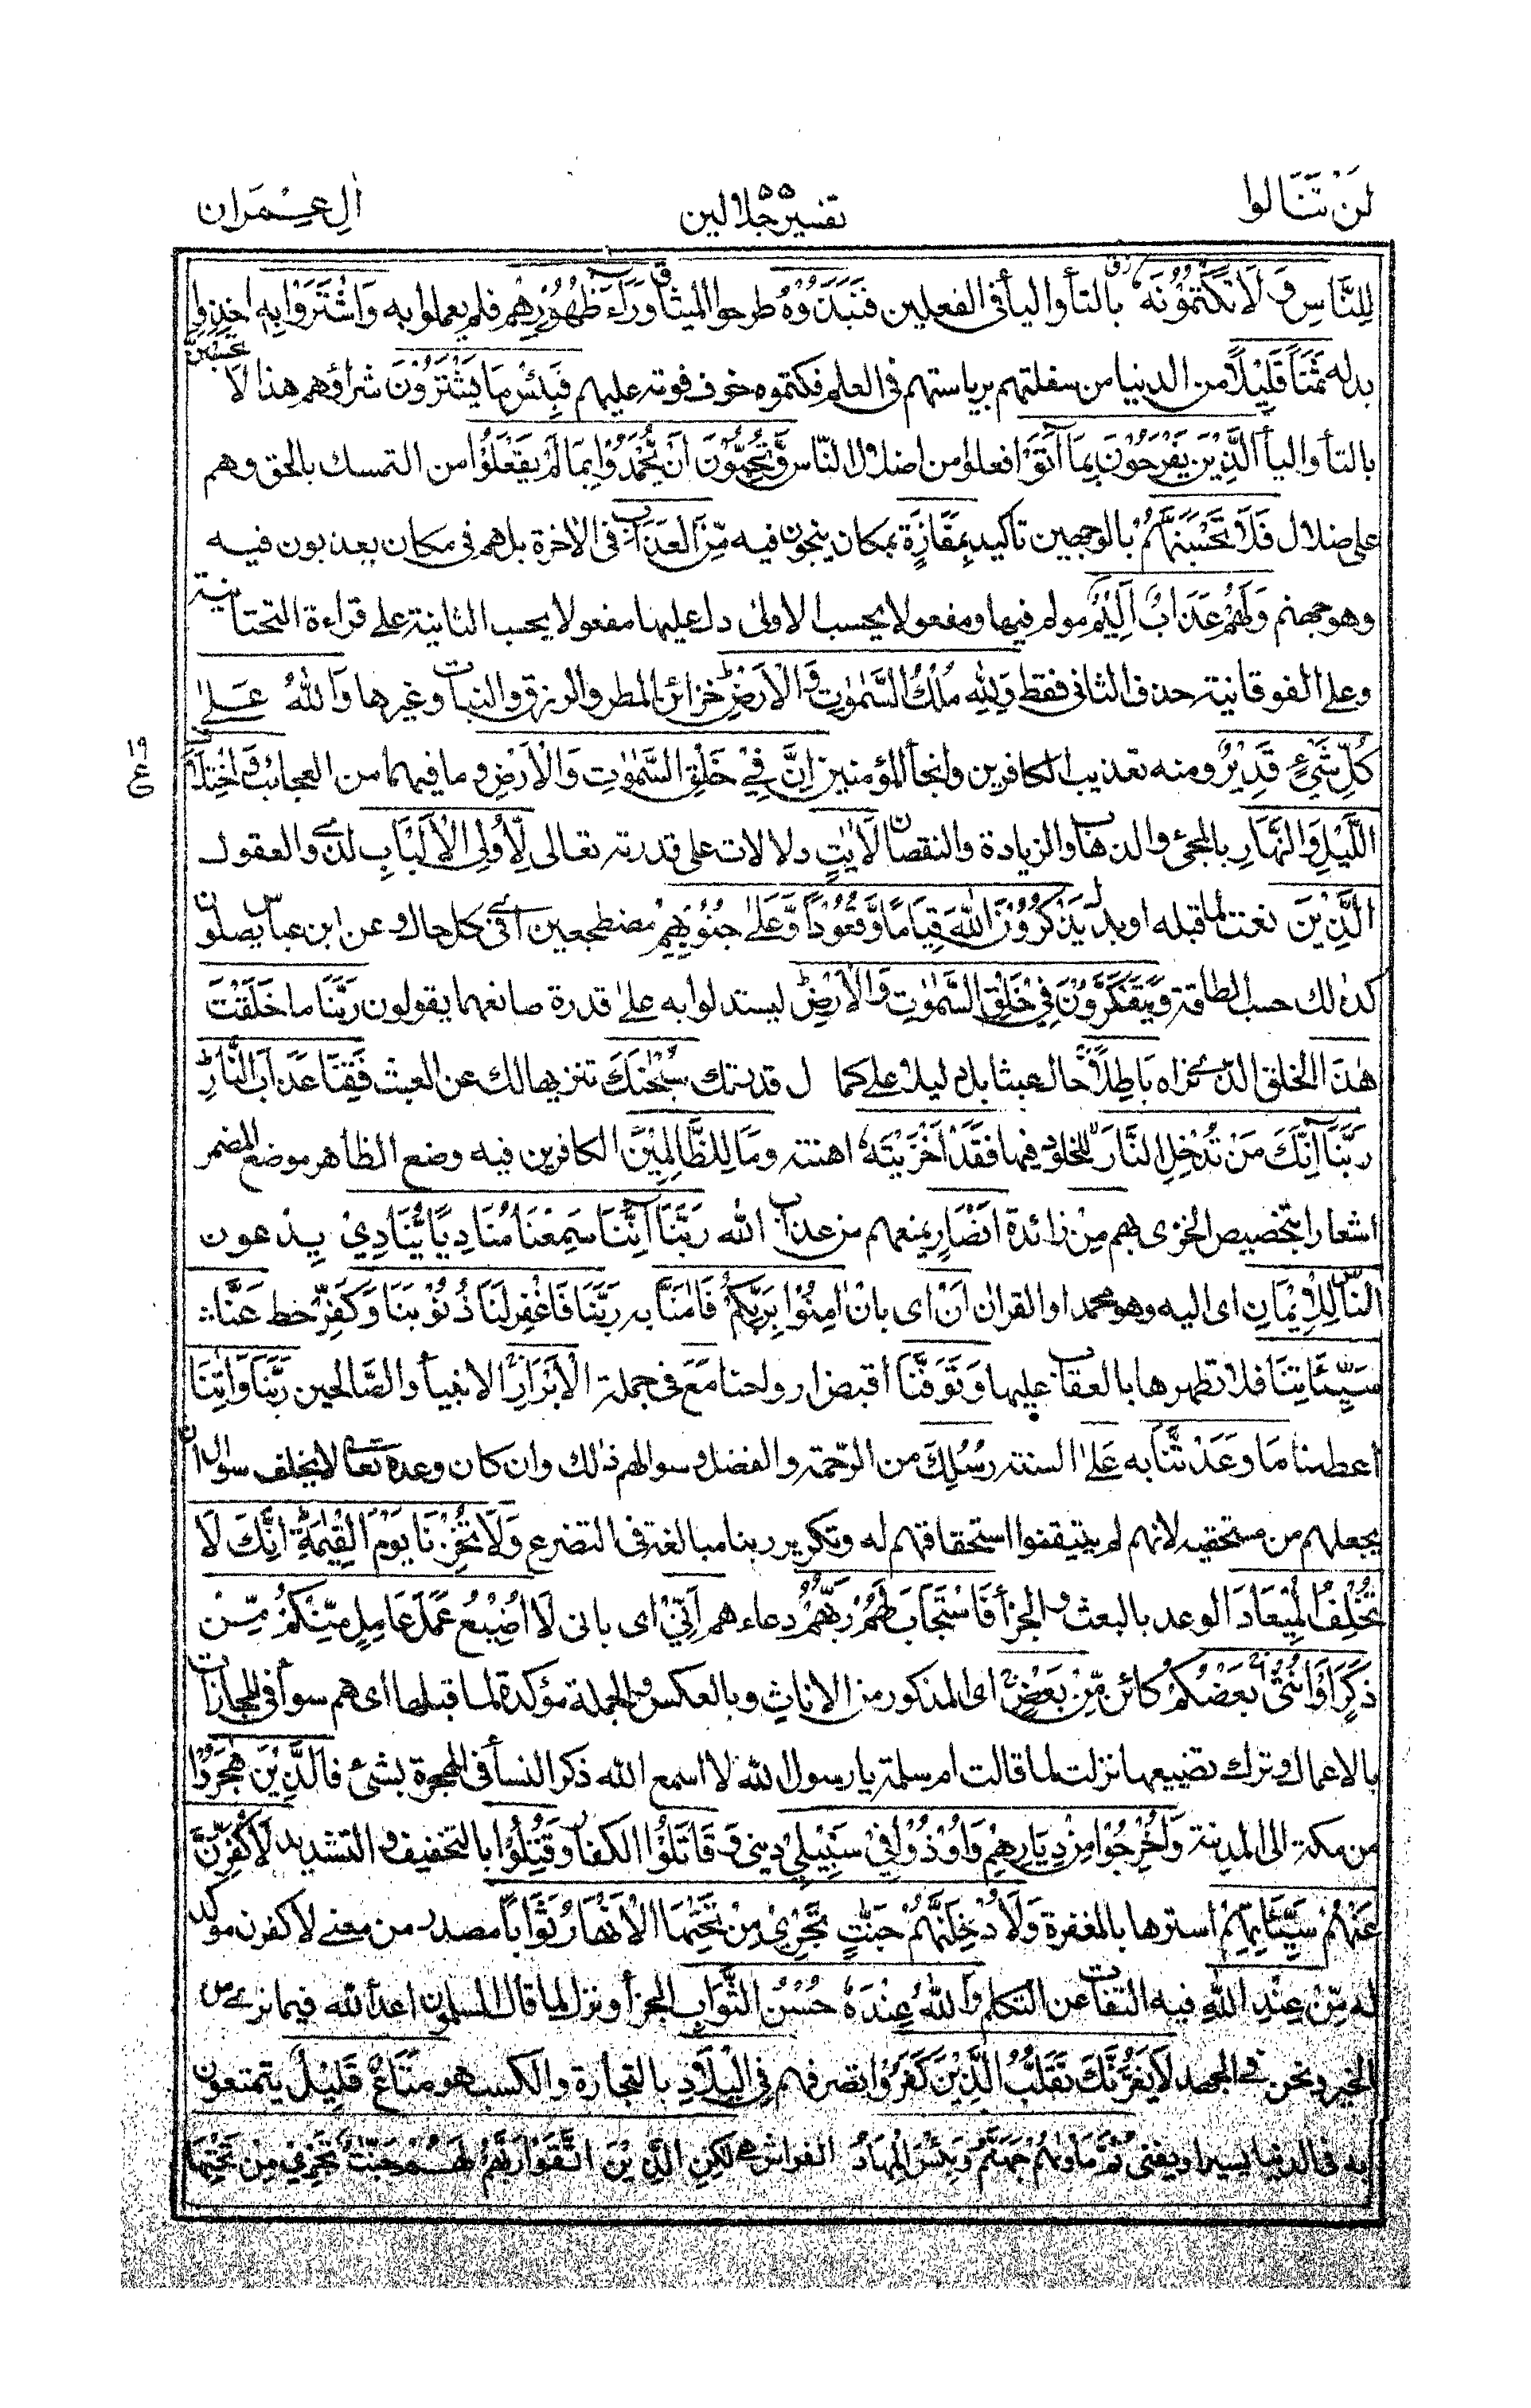 لَنْ تَنَالُوا
تفسير جلالين ۵۵
اٰلِ عِمْرَان
لِلنَّاسِ وَ لَا تَكْتُمُوْنَهٗ بالتأ واليأ فى الفعلين فَنَبَذُوْهُ طرحوا الميثاق وَرَآءَ ظُهُوْرِهِمْ فلم يعملوا به وَاشْتَرَوْا بِهٖ اخذوا
بدله ثَمَنًا قَلِيْلًا من الدنيا من سفلتهم برياستهم فى العلم فكتموه خوف فوته عليهم فَبِئْسَ مَا يَشْتَرُوْنَ شراؤهم هذا لَا تَحْسَبَنَّ
بالتأ واليأ الَّذِيْنَ يَفْرَحُوْنَ بِمَآ اَتَوْا فعلوا من اضلال الناس وَّيُحِبُّوْنَ اَنْ يُّحْمَدُوْا بِمَا لَمْ يَفْعَلُوْا من التمسك بالحق وهم
على ضلال فَلَا تَحْسَبَنَّهُمْ بالوجهين تاكيد بِمَفَازَةٍ بمكان ينجون فيه مِّنَ الْعَذَابِ فى الاخرة بل هم فى مكان يعذبون فيه
وهو جهنم وَلَهُمْ عَذَابٌ اَلِيْمٌ مولم فيها ومفعولا يحسب الاولى دل عليها مفعولا يحسب الثانية على قراءة التحتانية
وعلى الفوقانية حذف الثانى فقط وَلِلّٰهِ مُلْكُ السَّمٰوٰتِ وَ الْاَرْضِ خزائن المطر والرزق والنبات وغيرها وَاللّٰهُ عَلٰى
كُلِّ شَىْءٍ قَدِيْرٌ ومنه تعذيب الكافرين وانجأ المؤمنين اِنَّ فِىْ خَلْقِ السَّمٰوٰتِ وَالْاَرْضِ وما فيهما من العجائب وَ اخْتِلَافِ
۱۹
ع
اللَّيْلِ وَالنَّهَارِ بالمجئ والذهاب والزيادة والنقصان لَاٰيٰتٍ دلالات على قدرته تعالى لِّاُولِى الْاَلْبَابِ لذوى العقول
الَّذِيْنَ نعت لما قبله او بدل يَذْكُرُوْنَ اللّٰهَ قِيَامًا وَّقُعُوْدًا وَّعَلٰى جُنُوْبِهِمْ مضطجعين اى فى كل حال وعن ابن عباس يصلون
كذلك حسب الطاقة وَيَتَفَكَّرُوْنَ فِىْ خَلْقِ السَّمٰوٰتِ وَالْاَرْضِ ليستدلوا به على قدرة صانعهما يقولون رَبَّنَا مَا خَلَقْتَ
هٰذَا الخلق الذى نراه بَاطِلًا حال عبثا بل دليلا على كمال قدرتك سُبْحٰنَكَ تنزيها لك عن العبث فَقِنَا عَذَابَ النَّارِ
رَبَّنَآ اِنَّكَ مَنْ تُدْخِلِ النَّارَ للخلود فيها فَقَدْ اَخْزَيْتَهٗ اهنته وَمَا لِلظّٰلِمِيْنَ الكافرين فيه وضع الظاهر موضع المضمر
اشعارا بتخصيص الخزى بهم مِنْ زائدة اَنْصَارٍ يمنعهم من عذاب الله رَبَّنَآ اِنَّنَا سَمِعْنَا مُنَادِيًا يُّنَادِىْ يدعون
الناس لِلْاِيْمَانِ اى اليه وهو محمد او القران اَنْ اى بان اٰمِنُوْا بِرَبِّكُمْ فَاٰمَنَّا به رَبَّنَا فَاغْفِرْ لَنَا ذُنُوْبَنَا وَكَفِّرْ خط عَنَّا
سَيِّاٰتِنَا فلا تظهرها بالعقاب عليها وَتَوَفَّنَا اقبض ارواحنا مَعَ فى جملة الْاَبْرَارِ الانبيأ والصالحين رَبَّنَا وَاٰتِنَا
اعطنا مَا وَعَدْتَّنَا به عَلٰى السنة رُسُلِكَ من الرحمة والفضل وسوالهم ذلك وان كان وعده تعالى لا يخلف سوال ان
يجعلهم من مستحقيه لانهم لم يتيقنوا استحقاقهم له وتكرير ربنا مبالغة فى التضرع وَلَا تُخْزِنَا يَوْمَ الْقِيٰمَةِ اِنَّكَ لَا
تُخْلِفُ الْمِيْعَادَ الوعد بالبعث والجزأ فَاسْتَجَابَ لَهُمْ رَبُّهُمْ دعاءهم اَنِّىْ اى بانى لَا اُضِيْعُ عَمَلَ عَامِلٍ مِّنْكُمْ مِّنْ
ذَكَرٍ اَوْ اُنْثٰى بَعْضُكُمْ كائن مِّنْ بَعْضٍ اى المذكور من الاناث وبالعكس والجملة مؤكدة لما قبلها اى هم سوأ فى المجازات
بالاعمال وترك تضييعها نزلت لما قالت ام سلمة يا رسول الله لا اسمع الله ذكر النسأ فى الهجرة بشئ فَالَّذِيْنَ هَاجَرُوْا
من مكة الى المدينة وَاُخْرِجُوْا مِنْ دِيَارِهِمْ وَاُوْذُوْا فِىْ سَبِيْلِىْ دينى وَ قَاتَلُوْا الكفار وَقُتِلُوْا بالتخفيف والتشديد لَاُكَفِّرَنَّ
عَنْهُمْ سَيِّاٰتِهِمْ استرها بالمغفرة وَلَاُدْخِلَنَّهُمْ جَنّٰتٍ تَجْرِىْ مِنْ تَحْتِهَا الْاَنْهَارُ ثَوَابًا مصدر من معنى لاكفرن موكد
له مِّنْ عِنْدِ اللّٰهِ فيه التفات عن التكلم وَاللّٰهُ عِنْدَهٗ حُسْنُ الثَّوَابِ الجزأ ونزل لما قال المسلمون اعدأ الله فيما نرى من
الخير ونحن فى الجهد لَا يَغُرَّنَّكَ تَقَلُّبُ الَّذِيْنَ كَفَرُوْا تصرفهم فِى الْبِلَادِ بالتجارة والكسب هو مَتَاعٌ قَلِيْلٌ يتمتعون
به فى الدنيا يسيرا ويفنى ثُمَّ مَاْوٰىهُمْ جَهَنَّمُ وَبِئْسَ الْمِهَادُ الفراش هى لٰكِنِ الَّذِيْنَ اتَّقَوْا رَبَّهُمْ لَهُمْ جَنّٰتٌ تَجْرِىْ مِنْ تَحْتِهَا